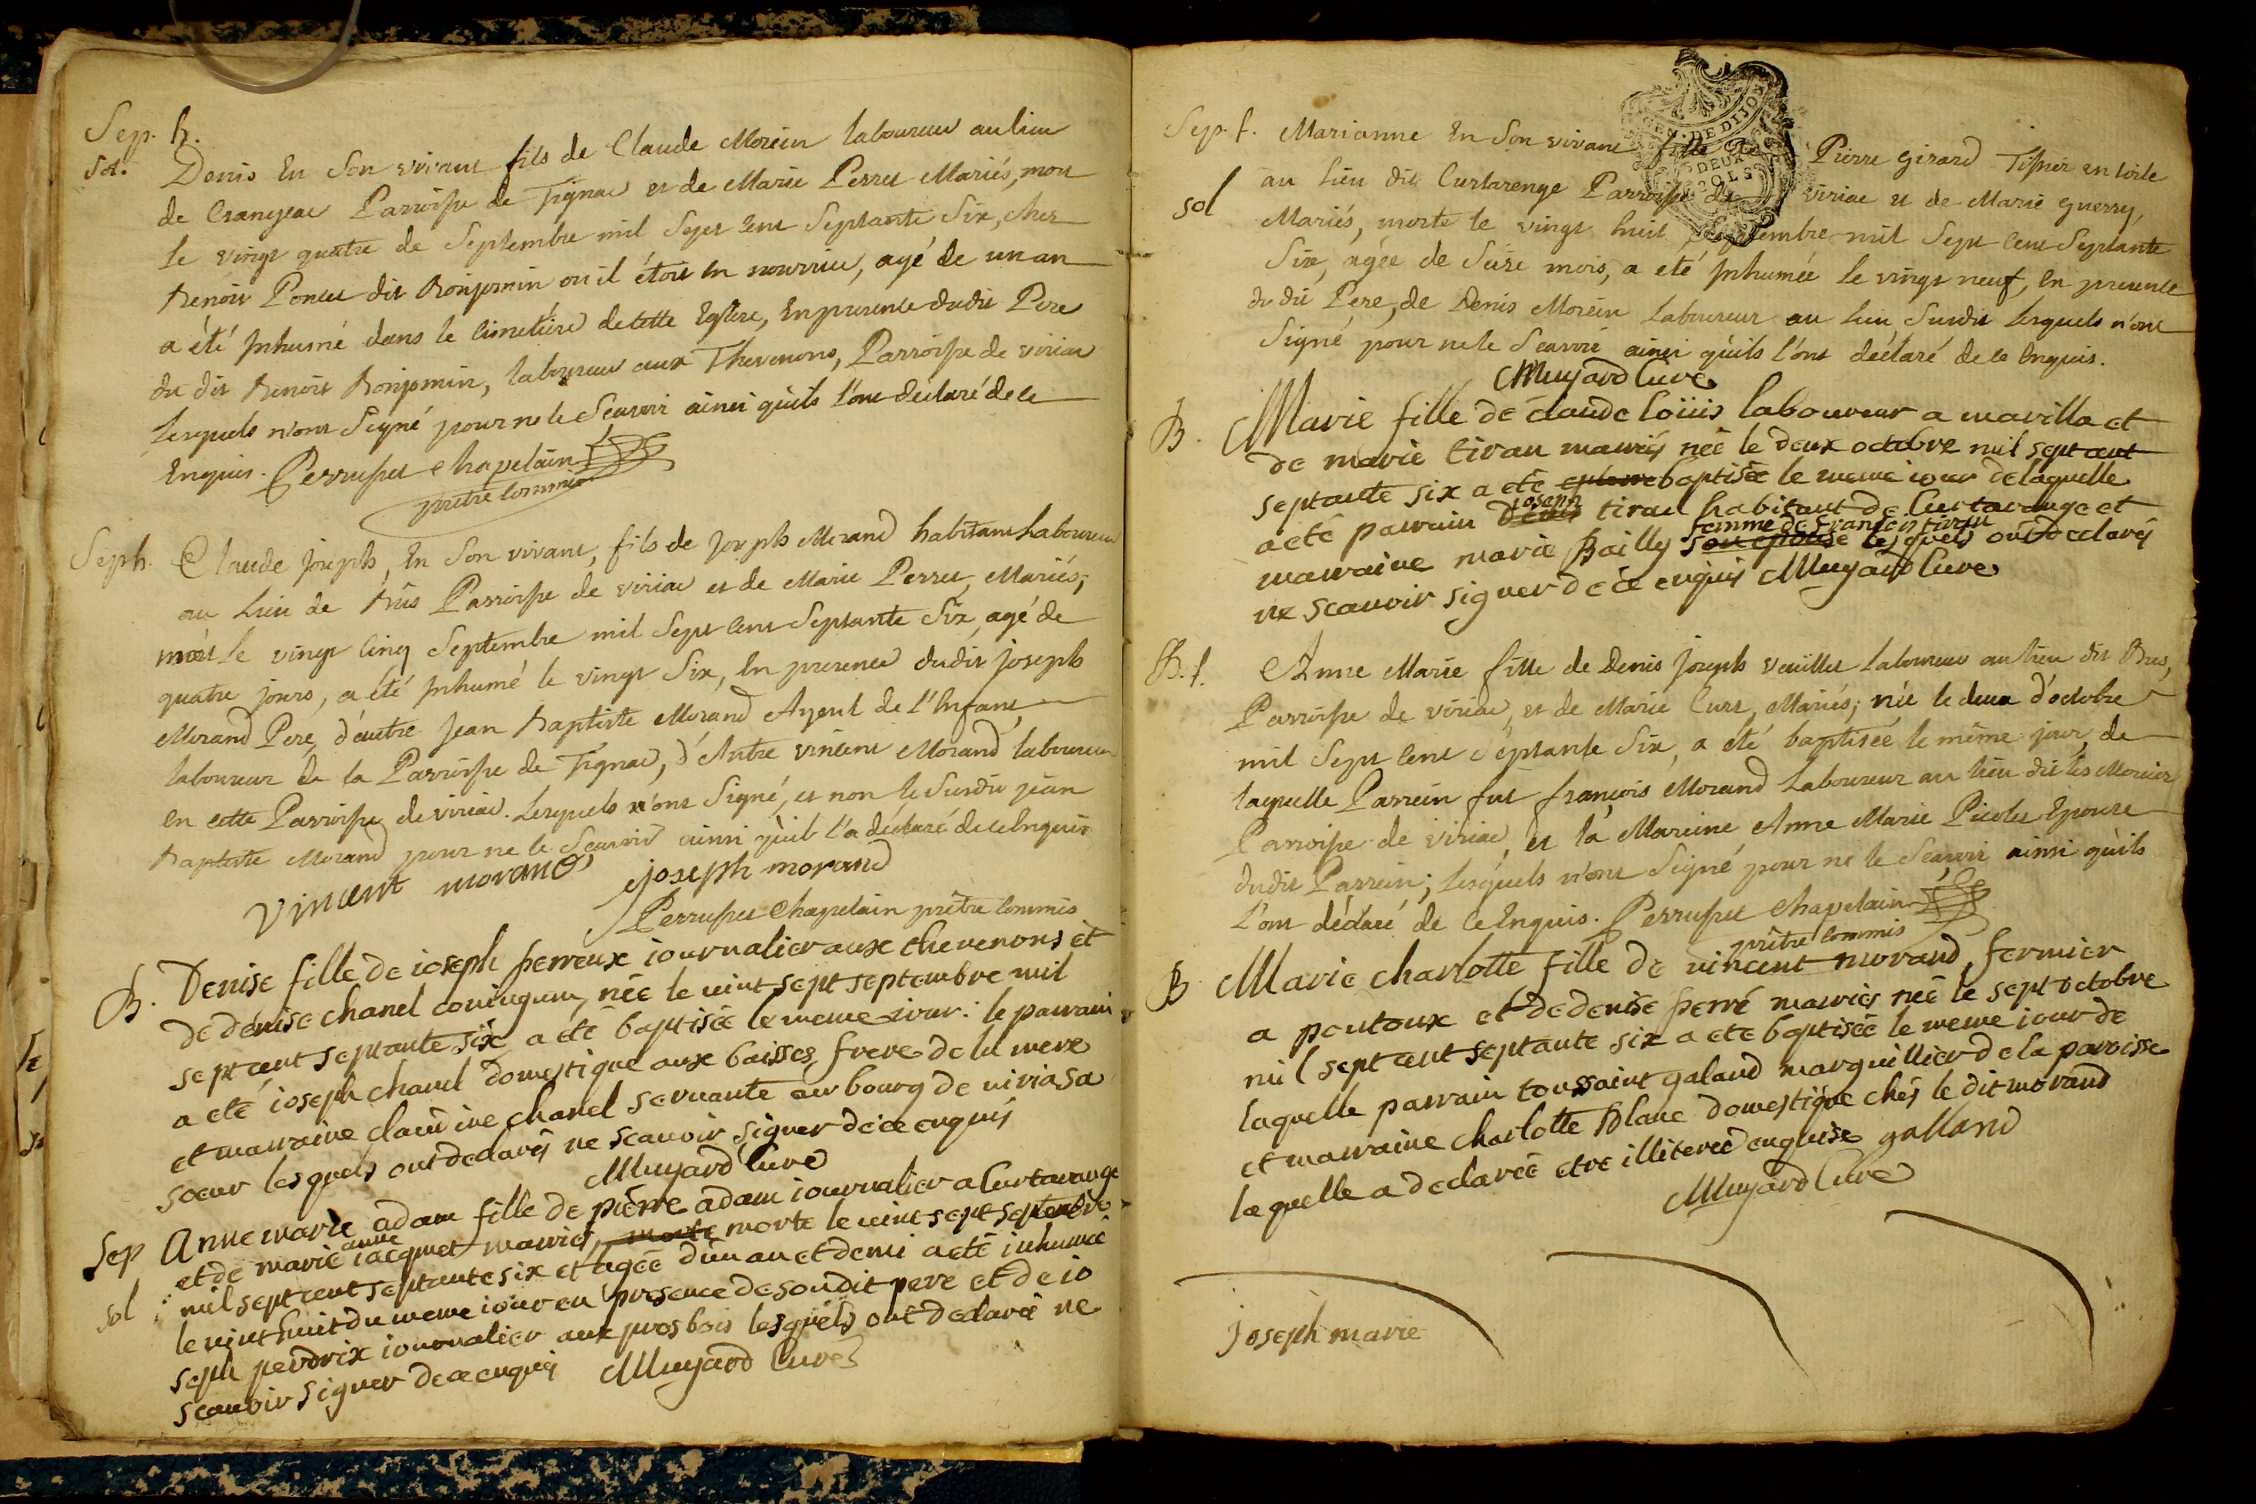 Sep. h.
sol.
Denis En Son vivant fils de Claude Morein laboureur au lieu
de Crangeac Parroisse de Tignac et de Marie Perret Mariés, mort
le vingt quatre de Septembre mil Sept Cent Septante Six, chez
Benoit Poncet dit Bonjomin où il étoit en nourrice, agé de un an
a été Inhumé dans le Cimetière de cette Eglise, En presence dudit Pere
du dit Benoit Bonjomin, laboureur aux Thevenons, Parroisse de viriac
Lesquels n'ont Signé pour ne le Scavoir ainsi quils l'ont déclaré de ce
Enquis. Perruset chapelain
prêtre Commis
Sep h. Claude joseph, En Son vivant, fils de joseph Morand habitant Laboureur
au Lieu de Bus Parroisse de viriac et de Marie Perret, Mariés;
mort le vingt Cinq Septembre mil Sept Cent Septante Six, agé de
quatre jours, a été Inhumé le vingt Six, En presence dudit joseph
Morand Pere, d'autre Jean Baptiste Morand Ayeul de l'Enfant
laboureur de la Parroisse de Tignac, d'Autre vincent Morand laboureur
en cette Parroisse de viriac. Lesquels n'ont Signé, et non le Susdit jean
Baptiste Morand pour ne le Scavoir ainsi qu'il l'a déclaré de ce Enquis
vincent morand joseph morand
Perruset Chapelain prêtre Commis
B. Denise fille de ioseph perreux iournalier aux thevenons et
de denise chanel coniugum, née le vint sept septembre mil
sept cent septante six a été baptisée le meme iour: le parrain
a eté ioseph chanel domestique aux baisses frere de la mere
et marraine claudine chanel servante au bourg de viria sa
soeur lesquels ont declarés ne scavoir signer de ce enquis
Muyard Curé
Sep Anne marie adam fille de pierre adam iournalier a Curtarange
et de marie anne iacquet mariés, morte morte le vint sept septembre
sol mil sept cent septante six et agée d'un an et demi a eté inhumée
le vint huit du meme iour en presence de son dit pere et de io
seph perdrix iournalier aux gros bois lesquels ont declaré ne
scauoir signer de ce enquis Muyard Curé
Sep. f. Marianne En Son vivant fille de Pierre Girard Tissier en toile
GEN. DE DIJON
DEUX
SOLS
sol
au Lieu dit Curtarenge Parroisse de viriac et de Marie Guerry,
Mariés, morte le vingt huit Septembre mil Sept Cent Septante
Six, agée de Seize mois, a eté Inhumée le vingt neuf, En presence
du dit Pere, de Denis Morein Laboureur au Lieu Susdit Lesquels n'ont
Signé pour ne le Scavoir ainsi qu'ils l'ont déclaré de ce Enquis.
Muyard Curé
B. Marie fille de claude Loüis laboureur a marilla et
de marie tiran mariés née le deux octobre mil sept cent
septante six a eté baptisée le meme iour de laquelle
a eté parrain Denis ioseph tiran habitant de Curtarange et
marraine marie Bailly son epouse femme de francois tiran lesquels ont declarés
ne scauoir signer de ce enquis Muyard Curé
B. f. Anne Marie fille de Denis joseph veuillet Laboureur au lieu dit Bus,
Parroisse de viriac, et de Marie Curt, Mariés; née le deux d'octobre
mil Sept Cent Septante Six, a été baptisée le même jour, de
laquelle Parrein fut françois Morand Laboureur au lieu dit les Moniers
Parroisse de viriac, et la Mareine Anne Marie Picolet Epouse
dudit Parrein; Lesquels n'ont Signé pour ne le Scavoir ainsi qu'ils
l'ont déclaré de ce Enquis. Perruset chapelain
prêtre Commis
B Marie charlotte fille de vincent morand fermier
a poutoux et de denise perré mariés née le sept octobre
mil sept cent septante six a eté baptisée le meme iour de
laquelle parrain toussaint galand marguillier de la paroisse
et marraine charlotte blanc domestique chés le dit morand
laquelle a declaréé etre illiterée enquise galland
Muyard Curé
joseph marie